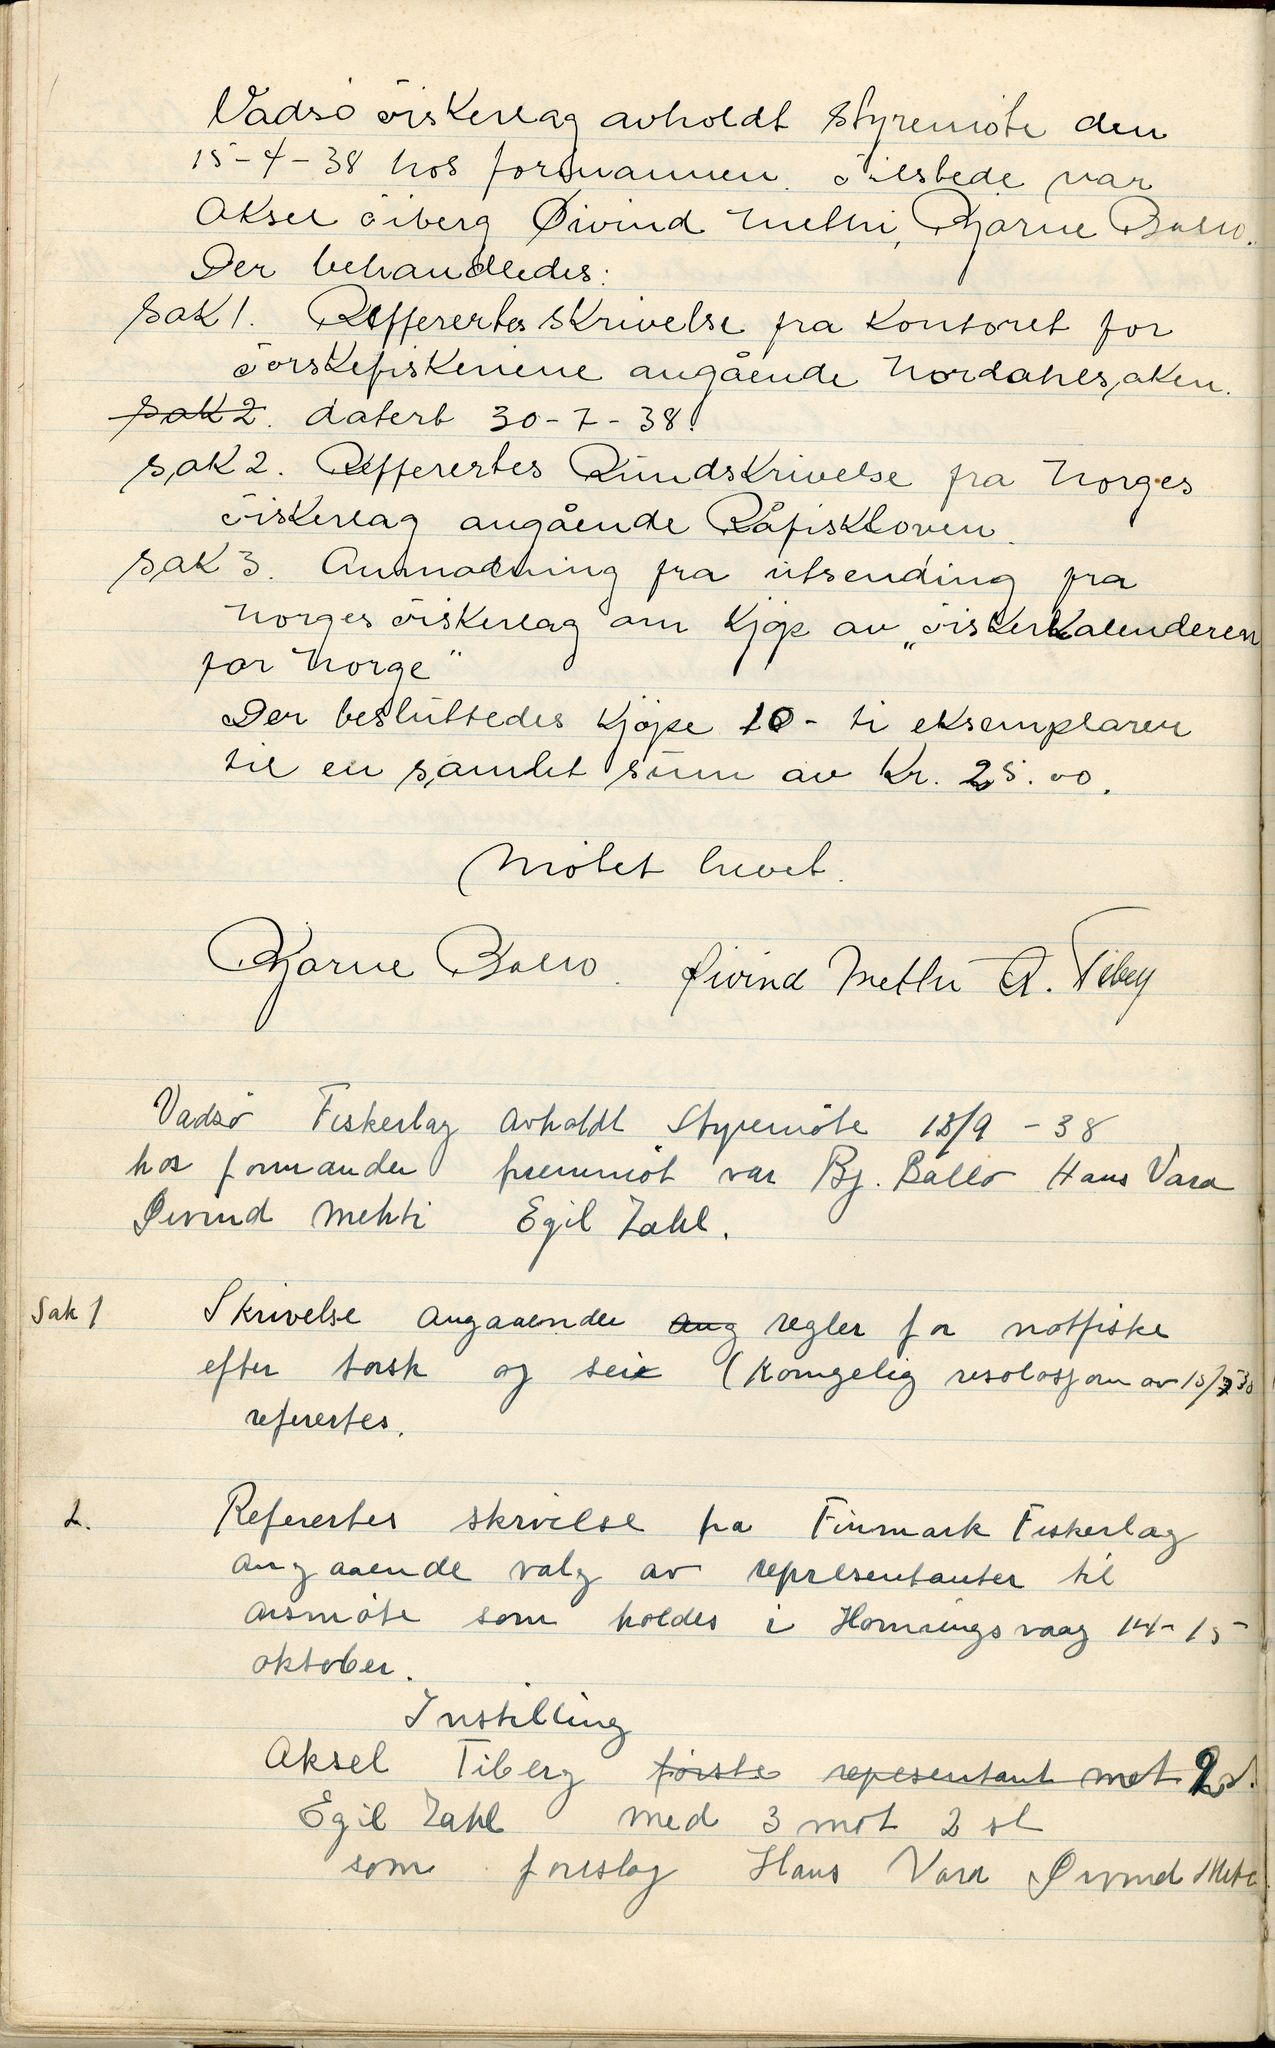 Vadsö Fiskerlag avholdt styremöte den
15-4-38 hos formannen. Tilstede var
Aksel Tiberg Øivind Methi, Bjarne Ballo.
Der behandledes:
Sak 1. Refferertes skrivelse fra Kontoret for
Torskefiskeriene angående Nordahlsaken.
Sak 2. datert 30-7-38.
Sak 2. Refferertes Rundskrivelse fra Norges
Fiskerlag angående Råfiskloven.
Sak 3. Anmodning fra utsending fra
Norges Fiskerlag om Kjöp av „Fiskerkalenderen
for Norge"
Der besluttedes Kjöpe 10- ti eksemplarer
til en samlet sum av Kr. 25.00.
Mötet hevet.
Bjarne Ballo. Øivind Methi A. Tiberg
Vadsö Fiskerlag avholdt Styremöte 18/9 - 38
hos formanden fremmöt var Bj. Ballo Hans Vara
Øivind Mehti Egil Zahl.
Sak 1 Skrivelse angaaende ang regler for notfiske
efter torsk og seie (Kongelig resolosjon av
referertes.
2. Referertes skrivelse fra Finmark Fiskerlag
angaaende valg av representanter til
årsmöte som holdes i Honningsvaag 14-15
oktober.
Instilling
Aksel Tiberg förste repesentant met
Egil Zahl med 3 mot 2 st
som foreslag Hans Vara Øivind